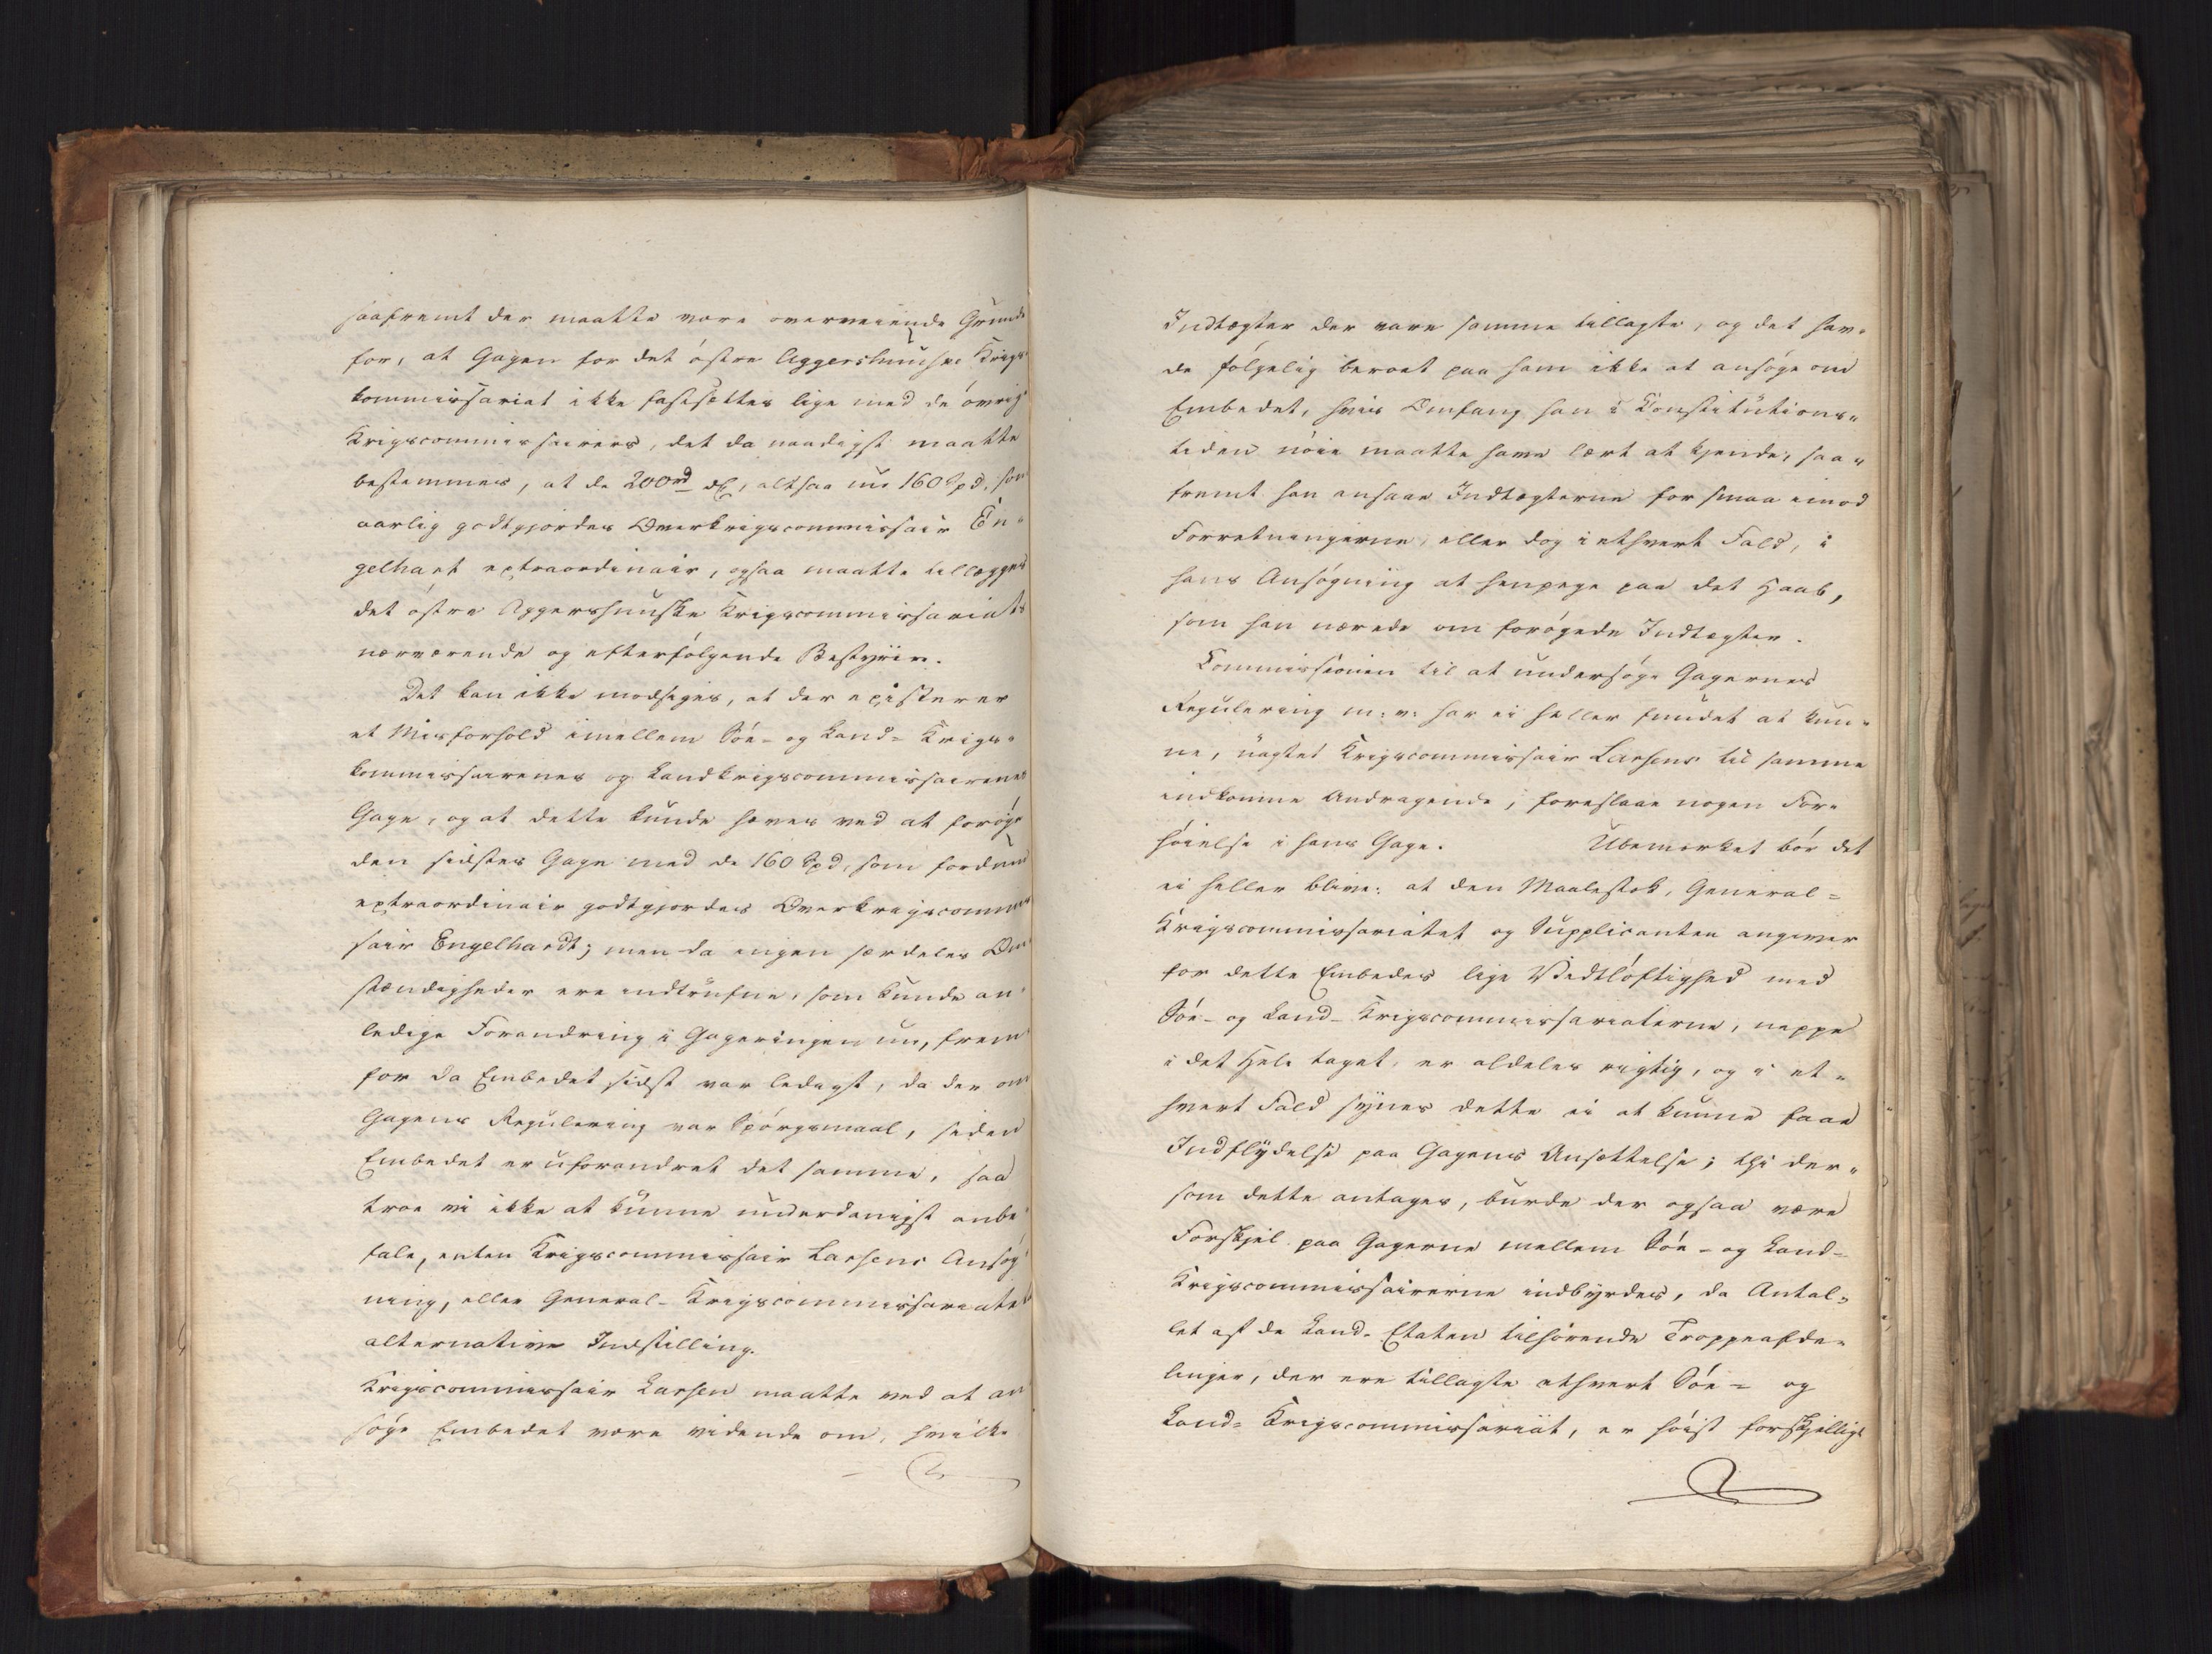 saafremt der maatte være overveiende Grunde
for, at Gagen for det østre Aggershuuske Krigs-
kommissariat ikke fastsættes lige med de øvrige
Krigscommissairers, det da naadigst maatte
bestemmes, at de 200 rd, altsaa nu 160 Spd, som
aarlig godtgjordes Overkrigscommissair En-
gelhart extraordinair, ogsaa maatte tillægges
det østre Aggershuuske Krigscommissariats
nærværende og efterfølgende Bestyrer.
Det kan ikke modsiges, at der existerer
et Misforhold imellem Søe- og Land- Krigs-
kommissairenes og Landkrigscommissairenes
Gage, og at dette kunde hæves ved at forøge
den sidstes Gage med de 160 Spd, som fordum
extraordinair godtgjordes Overkrigscommis
sair Engelhardt; men da ingen særdeles Om
stændigheder ere indtrufne, som kunde an-
ledige Forandring i Gageringen nu, frem
for da Embedet sidst var ledigt, da der om
Gagens Regulering var Spørgsmaal, siden
Embedet er uforandret det samme, saa
troe vi ikke at kunne underdanigst anbe
fale, enten Krigscommissair Larsens Ansøg
ning, eller General-Krigscommissariatets
alternative Indstilling.
Krigscommissair Larsen maatte ved at an
søge Embedet være vidende om, hvilke
Indtægter der vare samme tillagte, og det hav-
de følgelig beroet paa ham ikke at ansøge om
Embedet, hvis Omfang han i Konstitutions-
tiden nøie maatte have lært at kjende, saa-
fremt han ansaae Indtægterne for smaa imod
Forretningerne, eller dog i ethvert Fald, i
hans Ansøgning at henpege paa det Haab,
som han nærede om forøgede Indtægter.
Commissionen til at undersøge Gagernes
Regulering m: v: har ei heller fundet at kun-
ne, uagtet Krigscommissair Larsens til samme
indkomne Andragende, foreslaae nogen For-
høielse i hans Gage. Ubemærket bør det
ei heller blive: at den Maalestok, General-
Krigscommissariatet og Supplicanten angiver
for dette Embedes lige Vidtløftighed med
Søe- og Land- Krigscommissariaterne, neppe
i det Hele taget, er aldeles rigtig, og i et-
hvert Fald synes dette ei at kunne faae
Indflydelse paa Gagens Ansættelse; thi der-
som dette antages, burde der ogsaa være
Forskjel paa Gagerne mellem Søe- og Land-
Krigscommissairerne indbyrdes, da Antal-
let af de Land- Etaten tilhørende Troppeafde-
linger, der ere tillagte ethvert Søe- og
Land- Krigscommissariat, er høist forskjellige